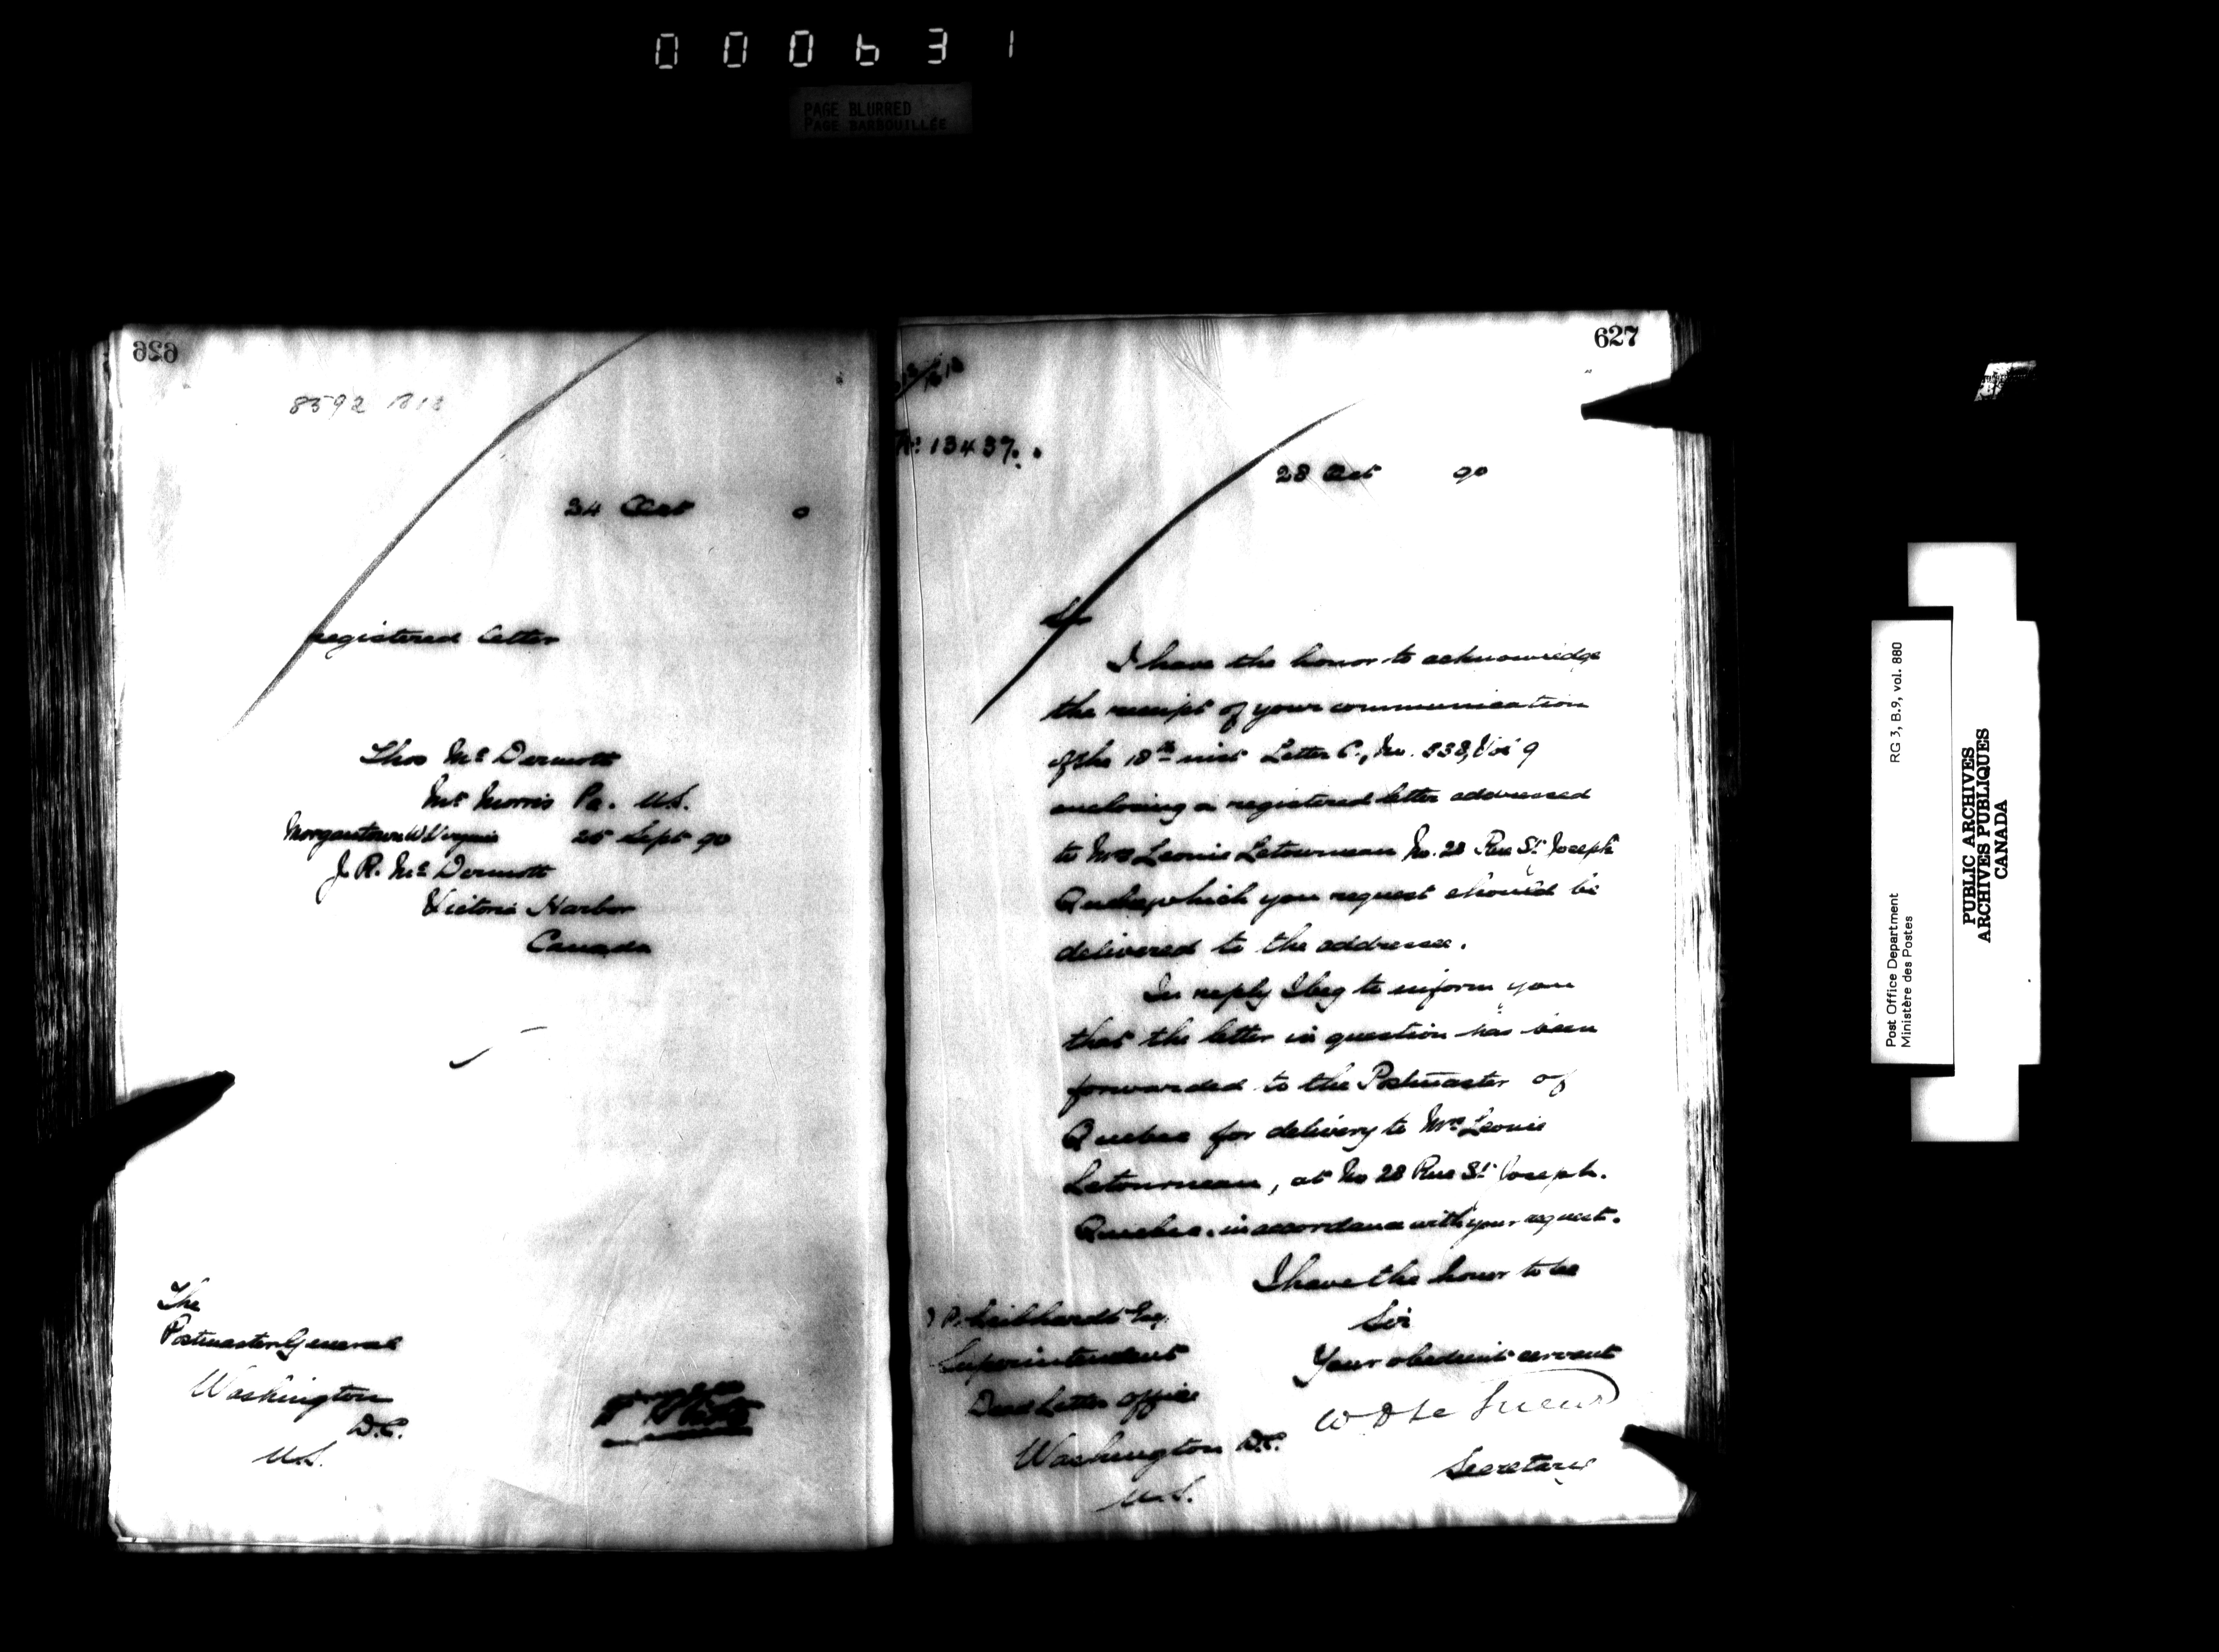 000631
PAGE BLURRED
PAGE BARBOUILLÉE
626
8592
24 Oct 0
registered letter
Thos McDermott
Mt Morris Pa. U.S.
Morgantown W Virginia 25 Sept 90
J. R. McDermott
Victoria Harbor
Canada
The
Postmaster General
Washington
D.C.
U.S.
627
No 13437.
28 Oct 90
Sir
I have the honor to acknowledge
the receipt of your communication
of the 18th inst Letter C., No. 338, Vol 9
enclosing a registered letter addressed
to Mrs Leonie Letourneau No. 28 Rue St. Joseph
Quebec, which you request should be
delivered to the addressee.
In reply I beg to inform you
that the letter in question has been
forwarded to the Postmaster of
Quebec for delivery to Mrs Leonie
Letourneau, at No 28 Rue St. Joseph.
Quebec. in accordance with your request.
I have the honor to be
Sir
Your obedient servant
W D Le Sueur
Secretary
D. P. Leibhardt Esq.
Superintendent
Dead Letter Office
Washington D.C.
U.S.
Post Office Department RG 3, B.9, vol. 880
Ministère des Postes
PUBLIC ARCHIVES
ARCHIVES PUBLIQUES
CANADA